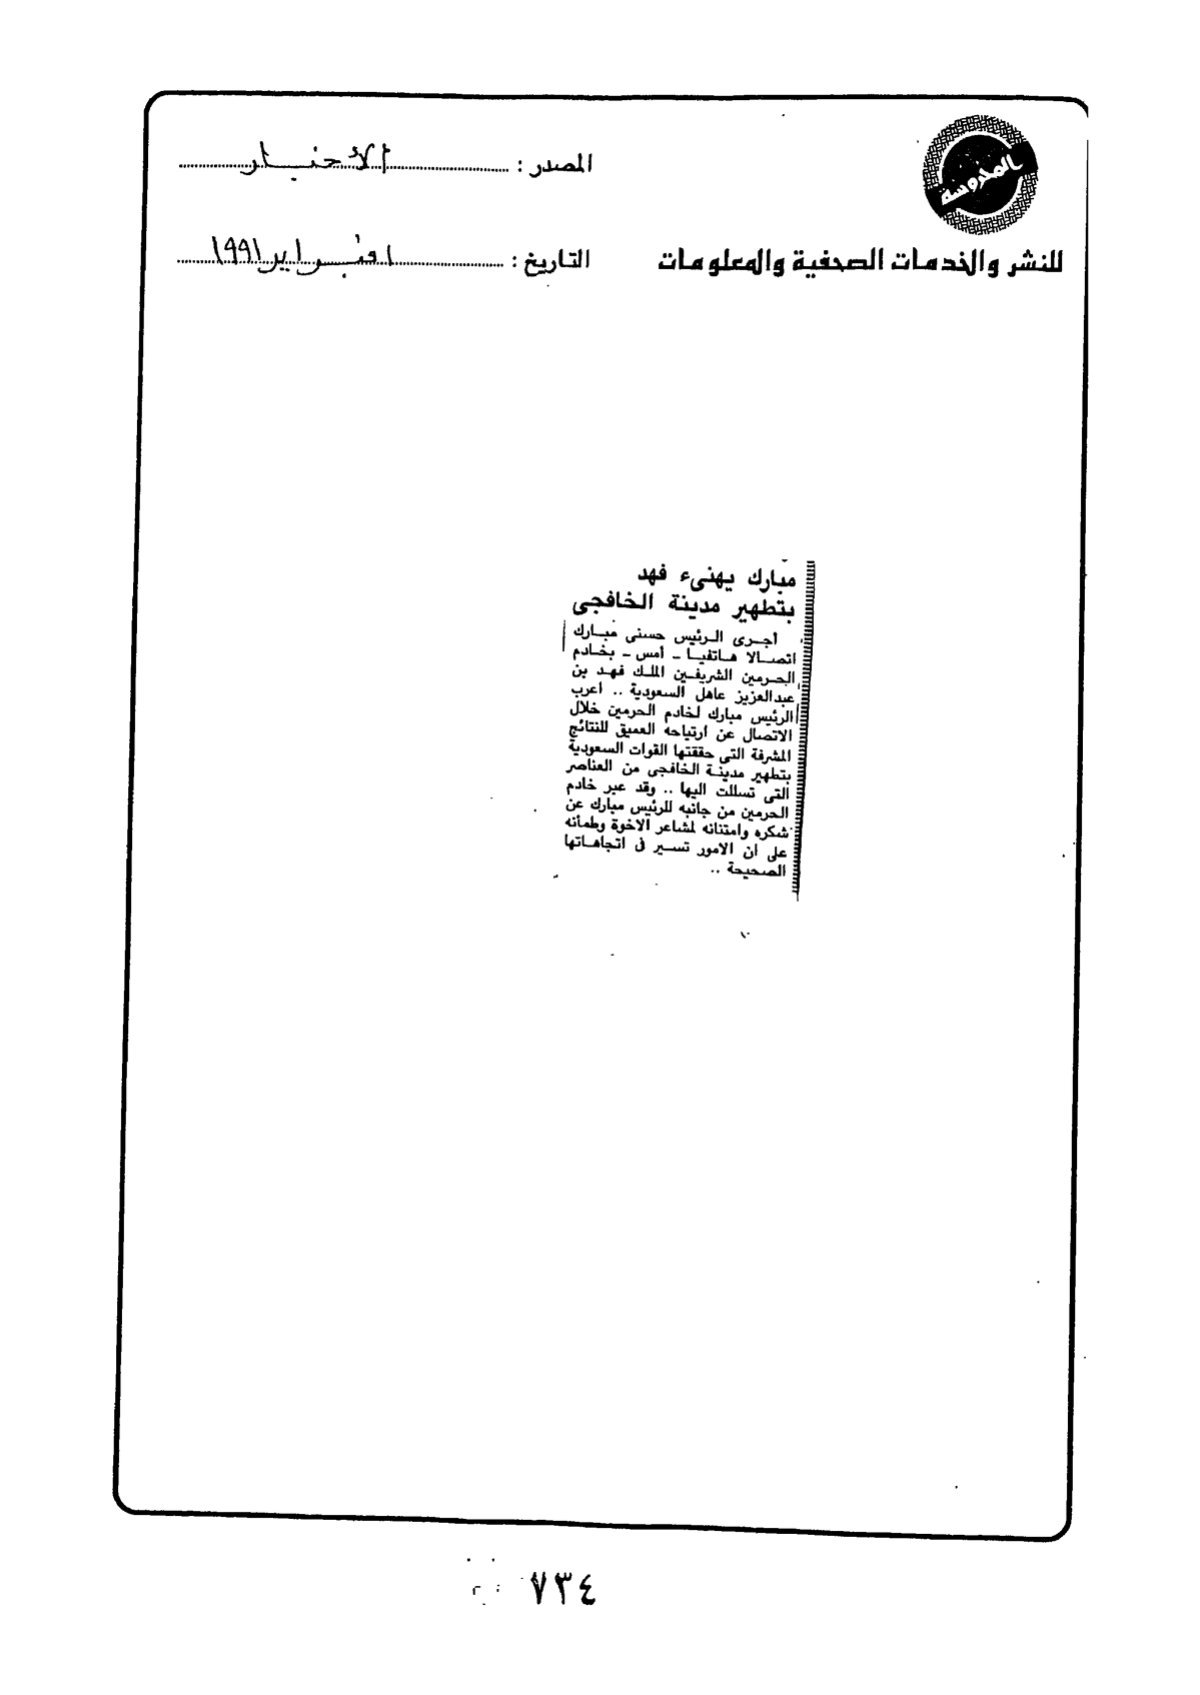 المحروسة
للنشر والخدمات الصحفية والمعلومات
المصدر : الأخبار
التاريخ : ١ فبراير ١٩٩١
مبارك يهنىء فهد
بتطهير مدينة الخافجى
أجرى الرئيس حسنى مبارك
اتصالا هاتفيا ـ أمس ـ بخادم
الحرمين الشريفين الملك فهد بن
عبدالعزيز عاهل السعودية .. أعرب
الرئيس مبارك لخادم الحرمين خلال
الاتصال عن ارتياحه العميق للنتائج
المشرفة التى حققتها القوات السعودية
بتطهير مدينة الخافجى من العناصر
التى تسللت اليها .. وقد عبر خادم
الحرمين من جانبه للرئيس مبارك عن
شكره وامتنانه لمشاعر الاخوة وطمأنه
على ان الامور تسير فى اتجاهاتها
الصحيحة ..
٧٣٤